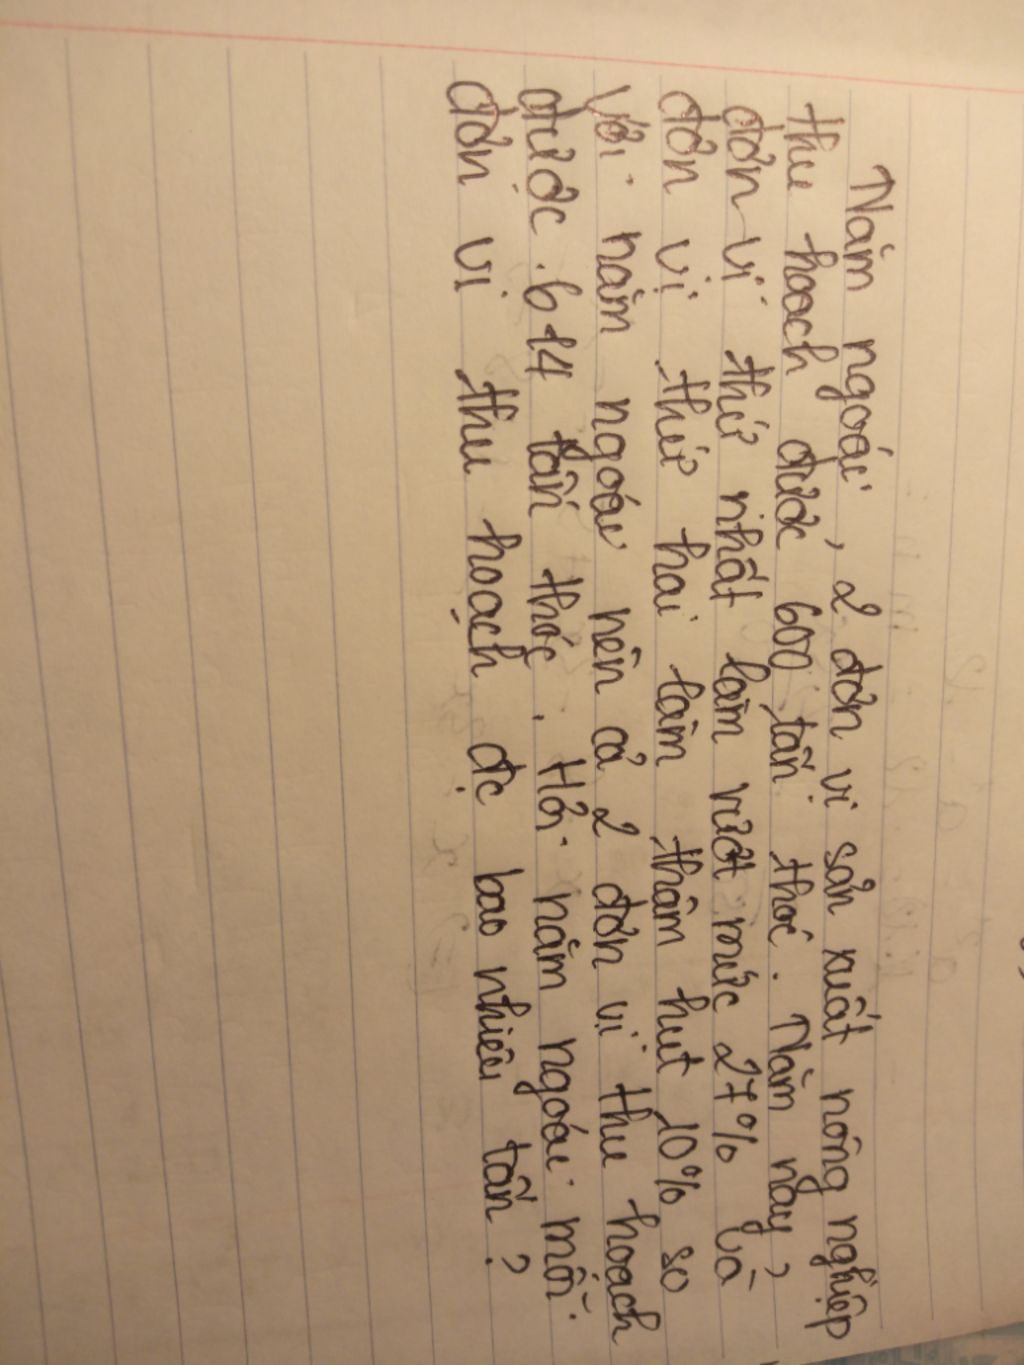 Năm ngoái, 2 đơn vị sản xuất nông nghiệp
thu hoạch được 600 tấn thóc. Năm nay,
đơn vị thứ nhất làm vượt mức 27% và
đơn vị thứ hai làm thâm hụt 10% so
với năm ngoái nên cả 2 đơn vị thu hoạch
được 614 tấn thóc. Hỏi năm ngoái mỗi
đơn vị thu hoạch đc bao nhiêu tấn?